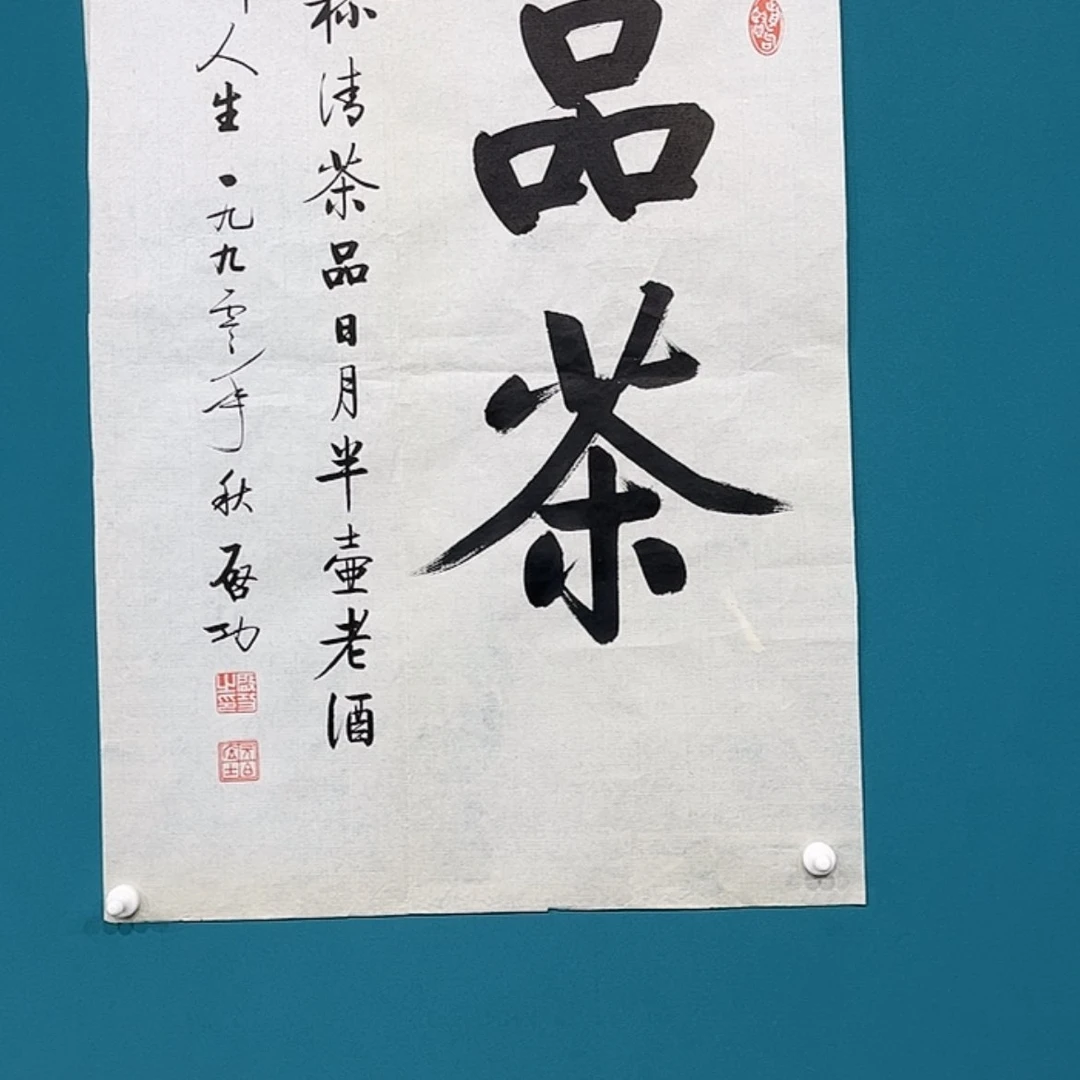 品茶
杯清茶品日月半壶老酒
人生一九九零年秋启功